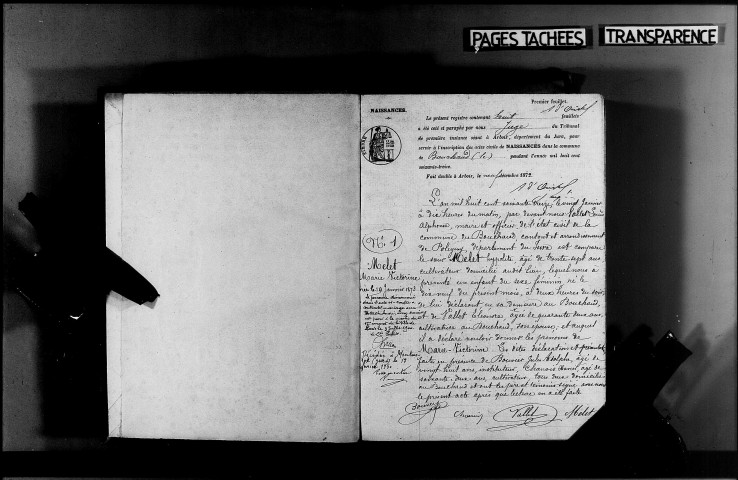 PAGES TACHEES TRANSPARENCE
Premier feuillet.
NAISSANCES.
Le présent registre contenant huit feuillets
a été coté et paraphé par nous Juge du Tribunal
de première instance séant à Arbois, département du Jura, pour
servir à l'inscription des actes civils de NAISSANCES dans la commune
de Bouchaud (le) pendant l'année mil huit cent
soixante-treize.
Fait double à Arbois, le neuf décembre 1872.
L'an mil huit cent soixante treize, le vingt Janvier
à dix heures du matin, par devant nous Vallet
Alphonse, maire et officier de l'état civil de la
commune du Bouchaud, canton et arrondissement
de Poligny, département du Jura est comparu
le sieur Melet Hyppolite, âgé de trente sept ans,
cultivateur domicilié audit lieu, lequel nous a
présenté un enfant du sexe féminin, né le
dix neuf du présent mois, à deux heures du soir,
de lui déclarant en sa demeure au Bouchaud,
et de Vallet Eléonore, âgée de quarante deux ans,
cultivatrice au Bouchaud, son épouse; et auquel
il a déclaré vouloir donner les prénoms de
Marie-Victorine. Les dites déclaration et présentation
faites en présence de Bouvier Jules, âgé de
vingt huit ans, instituteur, âgé de
soixante-deux ans, cultivateur, tous deux domiciliés
au Bouchaud et ont les père et témoins signé avec nous
le présent acte après que lecture en a été faite
Bouvier Vallet Melet
N° 1
Melet
Marie Victorine
née le 19 janvier 1873